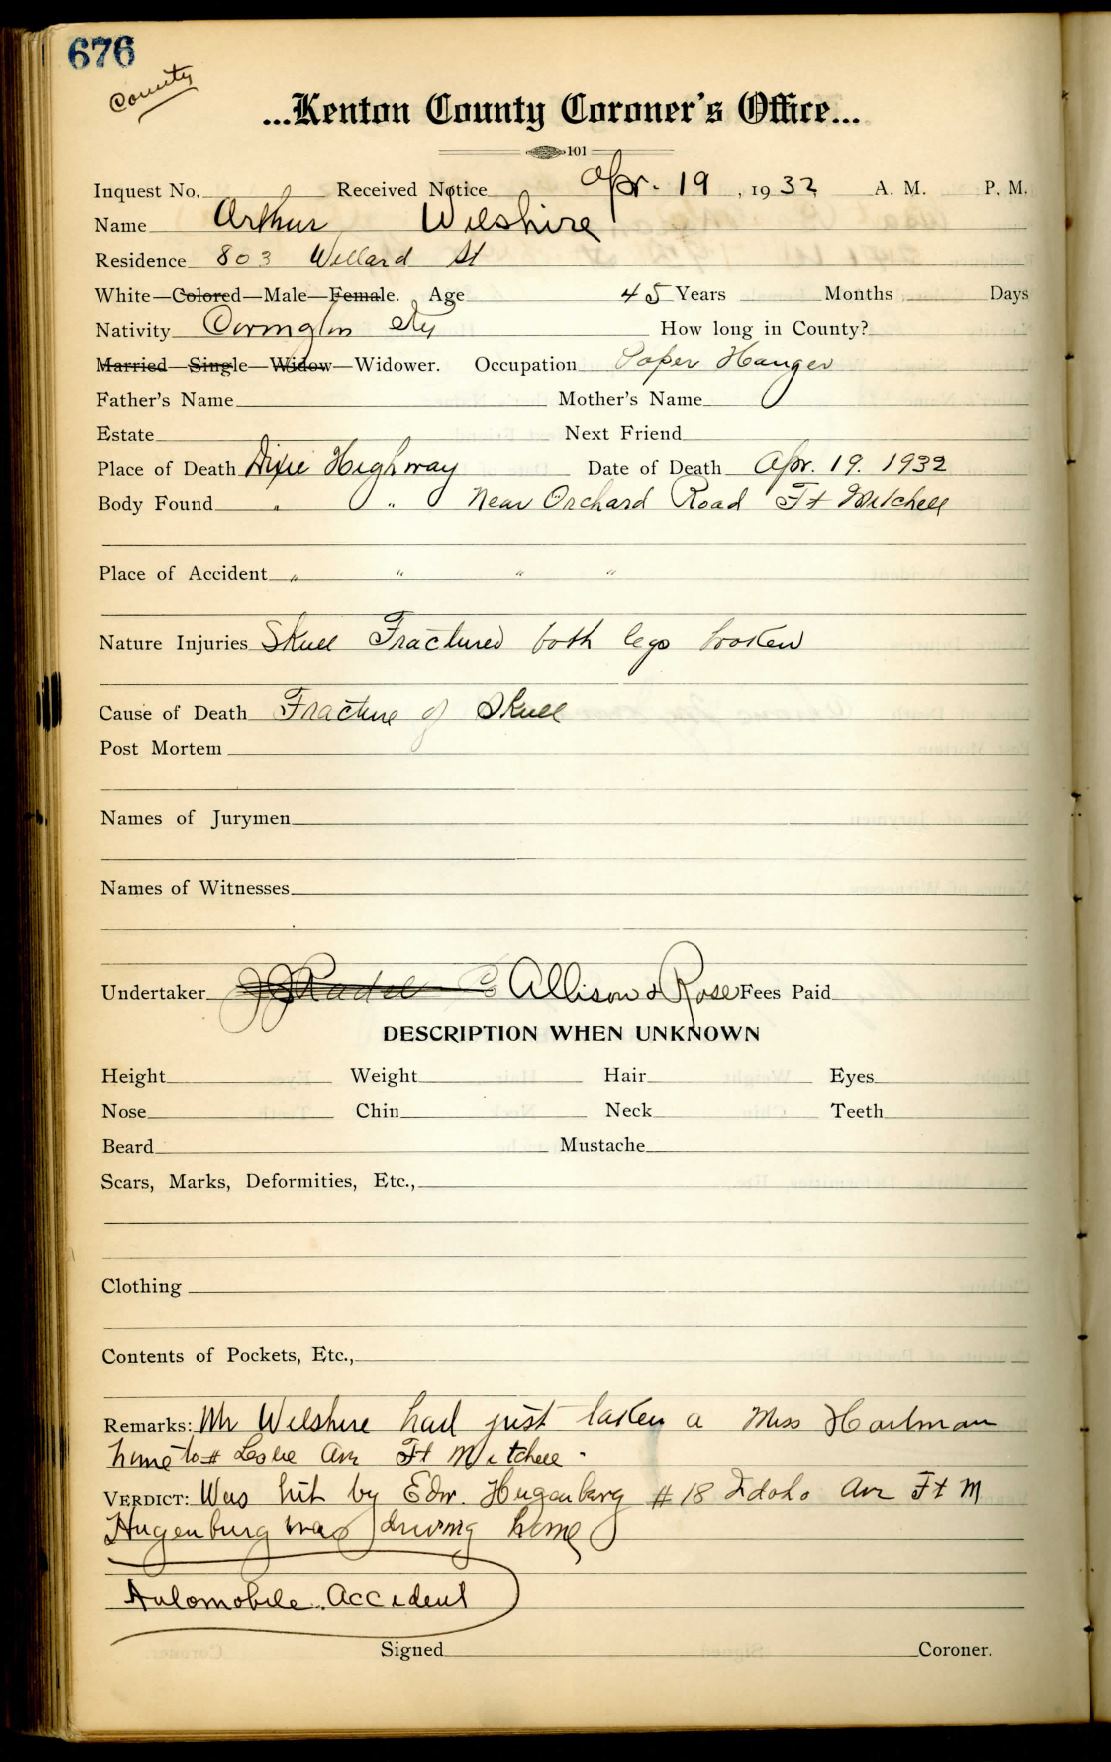 676
County
...Kenton County Coroner's Office...
101
Inquest No. Received Notice Apr. 19, 1932 A. M. P. M.
Name Arthur Wilshire
Residence 803 Willard St
White—Colored—Male—Female. Age 45 Years Months Days
Nativity Covington Ky How long in County?
Married—Single—Widow—Widower. Occupation Paper Hanger
Father's Name Mother's Name
Estate Next Friend
Place of Death Dixie Highway Date of Death Apr. 19. 1932
Body Found " " Near Orchard Road Ft Mitchell
Place of Accident " " " "
Nature Injuries Skull Fractured both legs broken
Cause of Death Fracture of Skull
Post Mortem
Names of Jurymen
Names of Witnesses
Undertaker Radel Co Allison & Rose Fees Paid
DESCRIPTION WHEN UNKNOWN
Height Weight Hair Eyes
Nose Chin Neck Teeth
Beard Mustache
Scars, Marks, Deformities, Etc.,
Clothing
Contents of Pockets, Etc.,
Remarks: Mr Wilshire had just taken a Miss
home to # Leslie Ave Ft Mitchell.
VERDICT: Was hit by Edw. Hugenberg #18 Idaho Ave Ft M
Hugenburg was driving home
Automobile Accident
Signed Coroner.